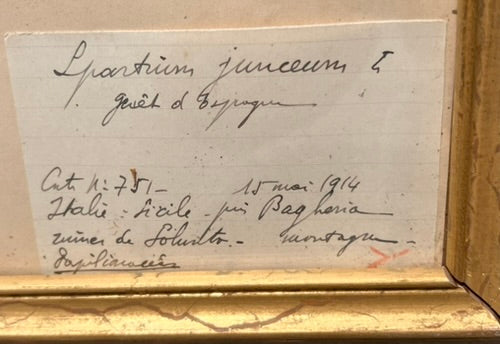 Spartium junceum L
genêt d'Espagne
Cat. N° 751- 15 mai 1914
Italie : Sicile - près Bagheria
ruines de Solunto. - montagne -
Papilionacées